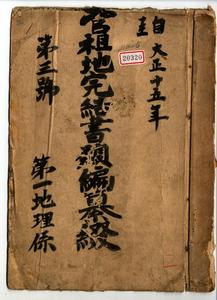 自大正十五年
至
官租地完結書類編纂綴
第三號
第一地理係
20320